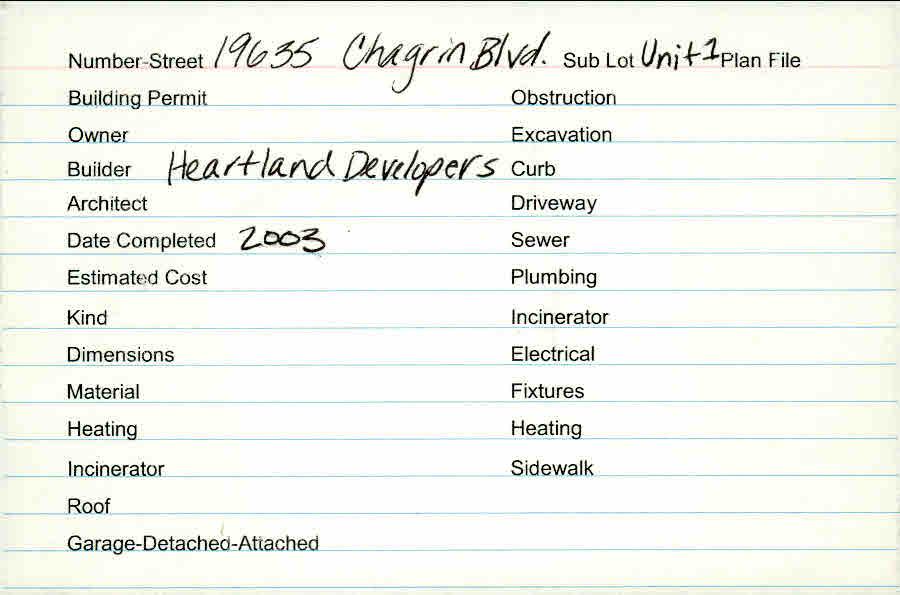 Number-Street 19635 Chagrin Blvd. Sub Lot Unit 1 Plan File
Building Permit Obstruction
Owner Excavation
Builder Heartland Developers Curb
Architect Driveway
Date Completed 2003 Sewer
Estimated Cost Plumbing
Kind Incinerator
Dimensions Electrical
Material Fixtures
Heating Heating
Incinerator Sidewalk
Roof
Garage-Detached-Attached